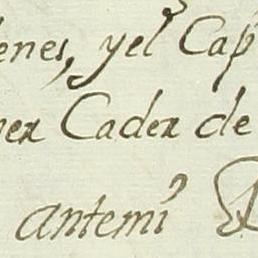 enes, y el Cap
er Cader de
antemi